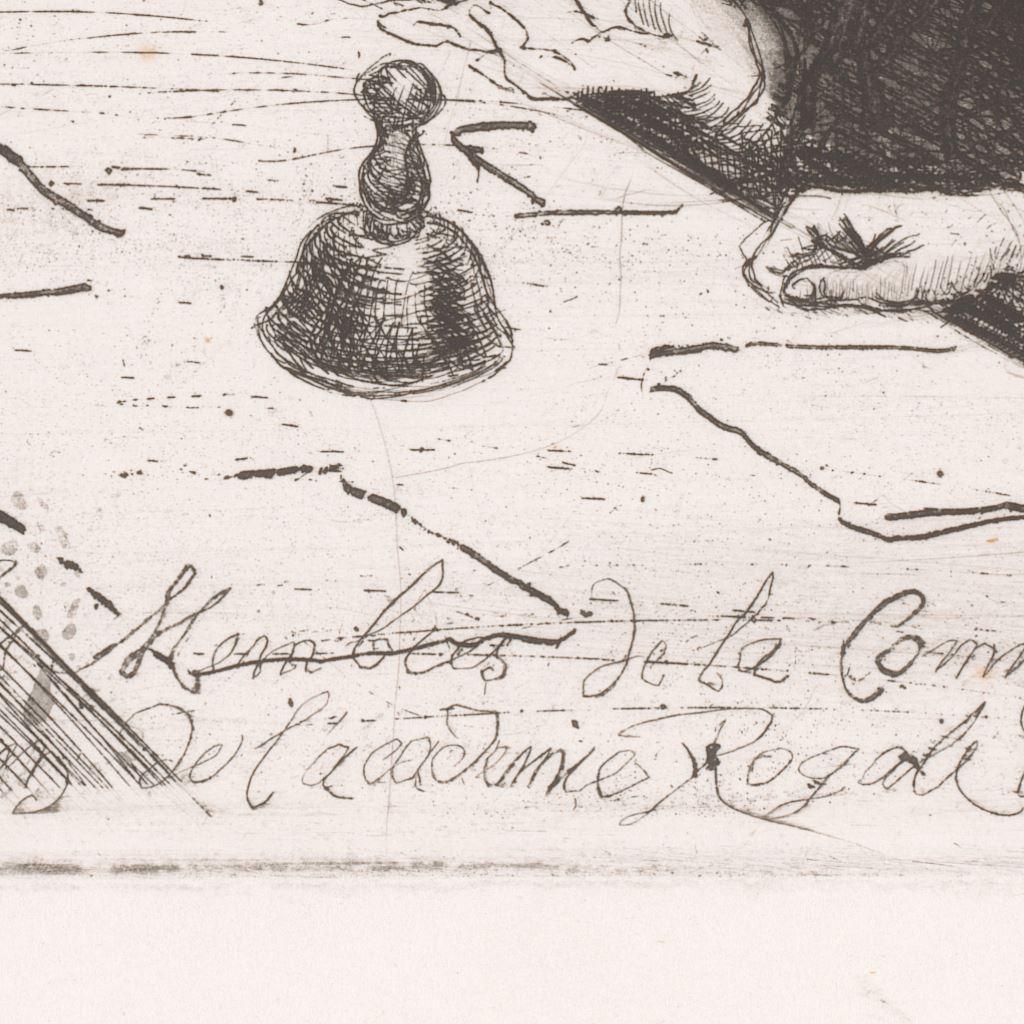 Membres de la Comm
de l'academie Royale